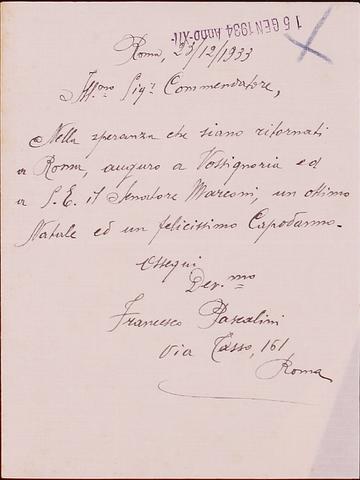 15 GEN 1934 Anno XII
Roma, 23/12/1933
Ill.mo Sig.r Commendatore,
Nella speranza che siano ritornati
a Roma, auguro a Vossignoria ed
a S. E. il Senatore Marconi, un ottimo
Natale ed un felicissimo Capodanno.
Ossequi
Dev.mo
Francesco Pascalini
Via Tasso, 161
Roma